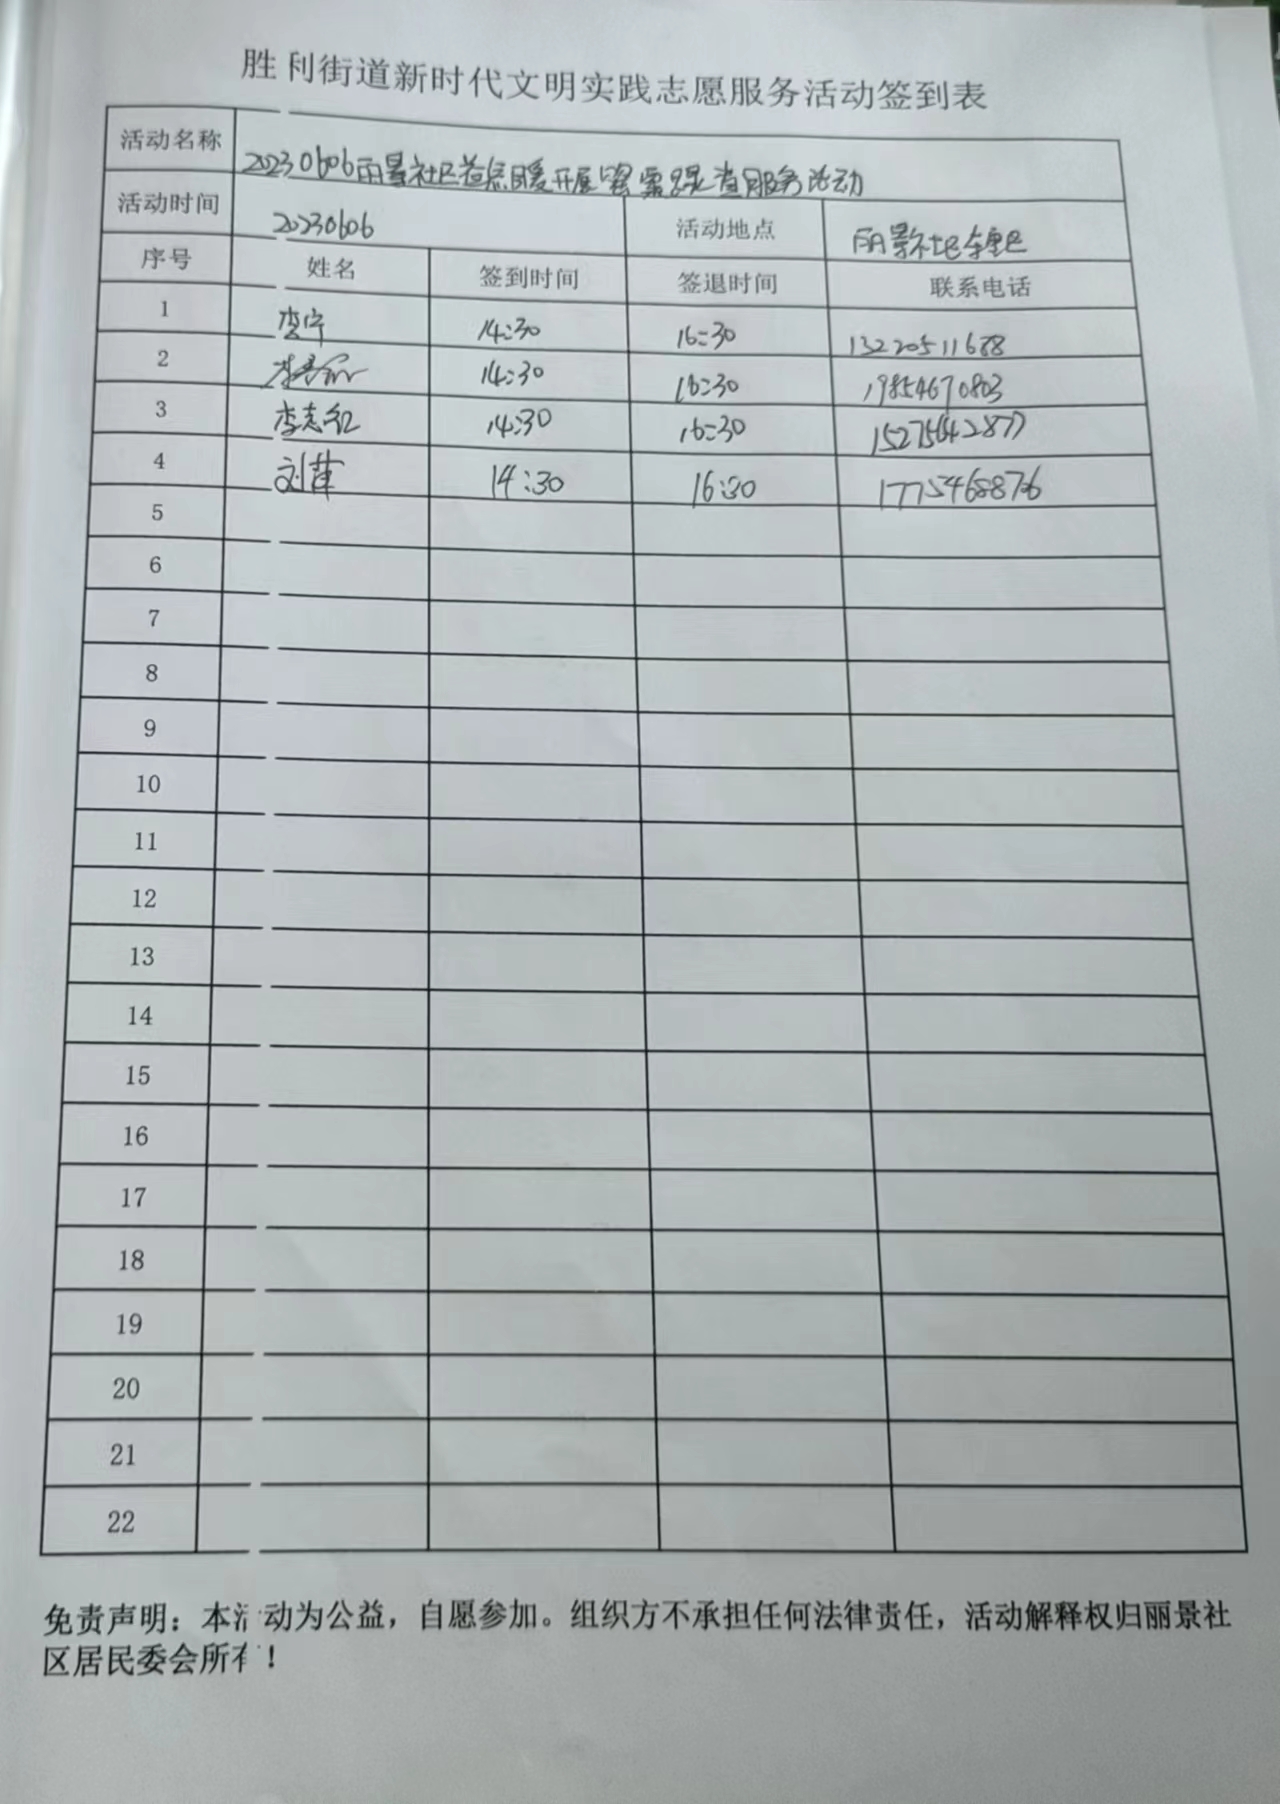 胜利街道新时代文明实践志愿服务活动签到表
活动名称 20230606丽景社区益心暖开展 服务活动
活动时间 20230606 活动地点 丽景社区辖区
序号 姓名 签到时间 签退时间 联系电话
1 李宁 14:30 16:30 13220511688
2 14:30 16:30 19854670803
3 李志红 14:30 16:30 15275642877
4 刘萍 14:30 16:30 17754688736
5
6
7
8
9
10
11
12
13
14
15
16
17
18
19
20
21
22
免责声明：本活动为公益，自愿参加。组织方不承担任何法律责任，活动解释权归丽景社
区居民委会所有！